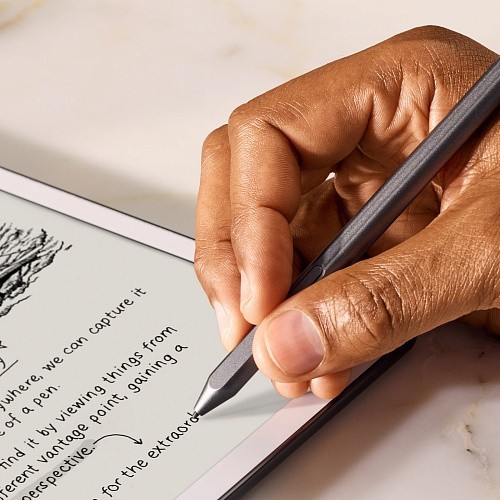 ywhere, we can capture it
e of a pen.
find it by viewing things from
fferent vantage point, gaining a
perspective.
for the extraord